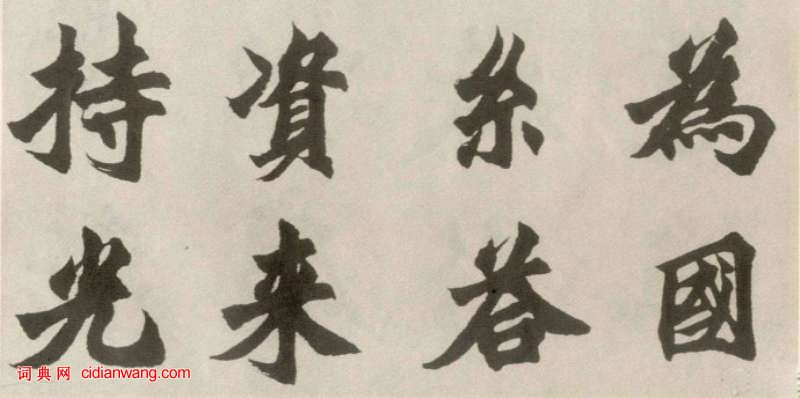 為國
糸荅
資来
持光
词典网 cidianwang.com